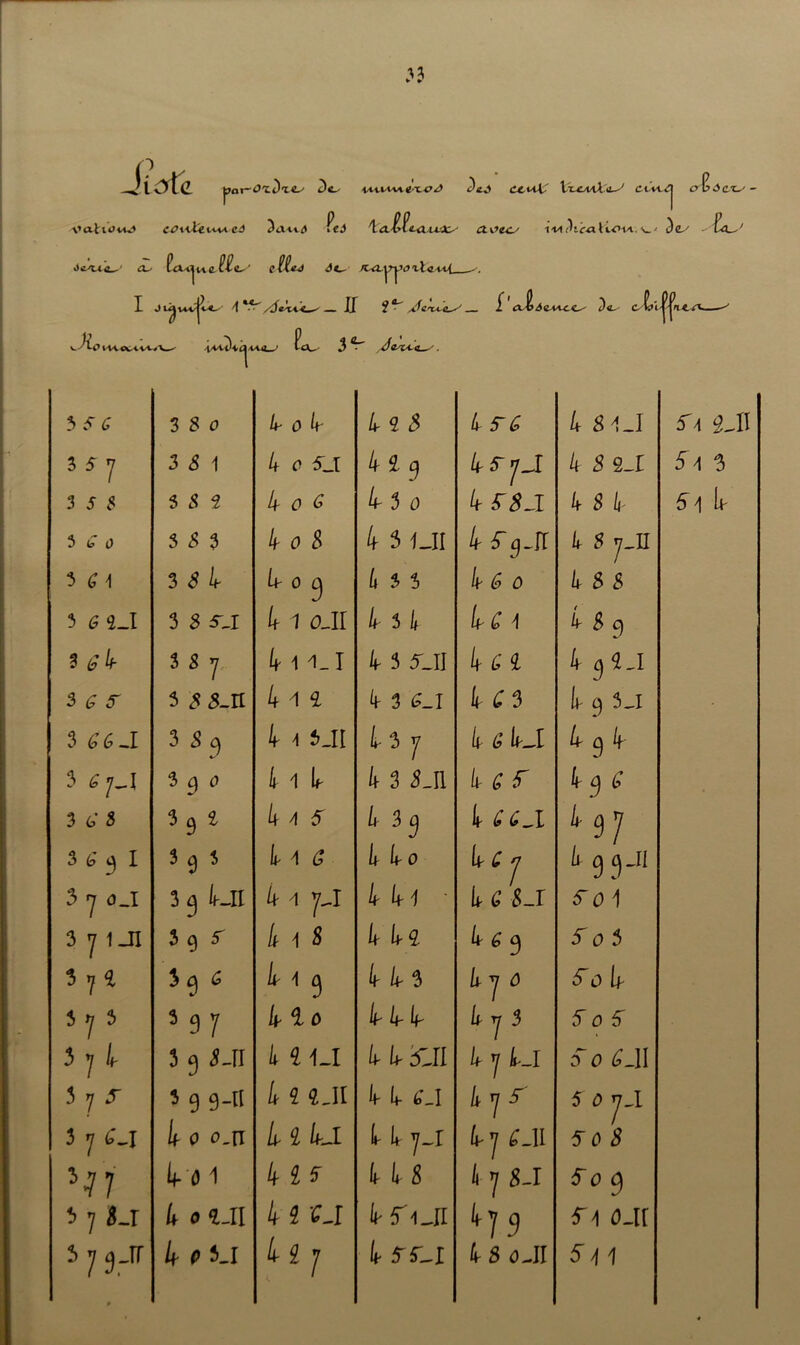 33
Liste par ordre de numéros des cent trente cinq obser-
vations contenues dans les Tableaux avec indication de la
série à laquelle elles se rapportent.
I signifie 1re Série — II 2e Série — l'absence de chiffre
Romain indique la 3e Série.
356 380 404 428 456 481_I 512_II
357 381 405_I 429 457_I 482_I 513
358 382 406 430 458_I 484 514
360 383 408 431_II 459_II 487_II
361 384 409 433 460 488
362_I 385_I 410_II 434 461 489
364 387 411_I 435_II 462 492_I
365 388_II 412 436_I 463 493_I
366_I 389 413_II 437 464_I 494
367_I 390 414 438_II 465 496
368 392 415 439 466_I 497
369 I 393 416 440 467 499_II
370_I 394_II 417_I 441 468_I 501
371_II 395 418 442 469 503
372 396 419 443 470 504
373 397 420 444 473 505
374 398_II 421_I 445_II 474_I 506_II
375 399_II 422_II 446_I 475 507_I
376_I 400_II 424_I 447_I 476_II 508
377 401 425 448 478_I 509
378_I 402_II 426_I 451_II 479 510_II
379_II 403_I 427 455_I 480_II 511